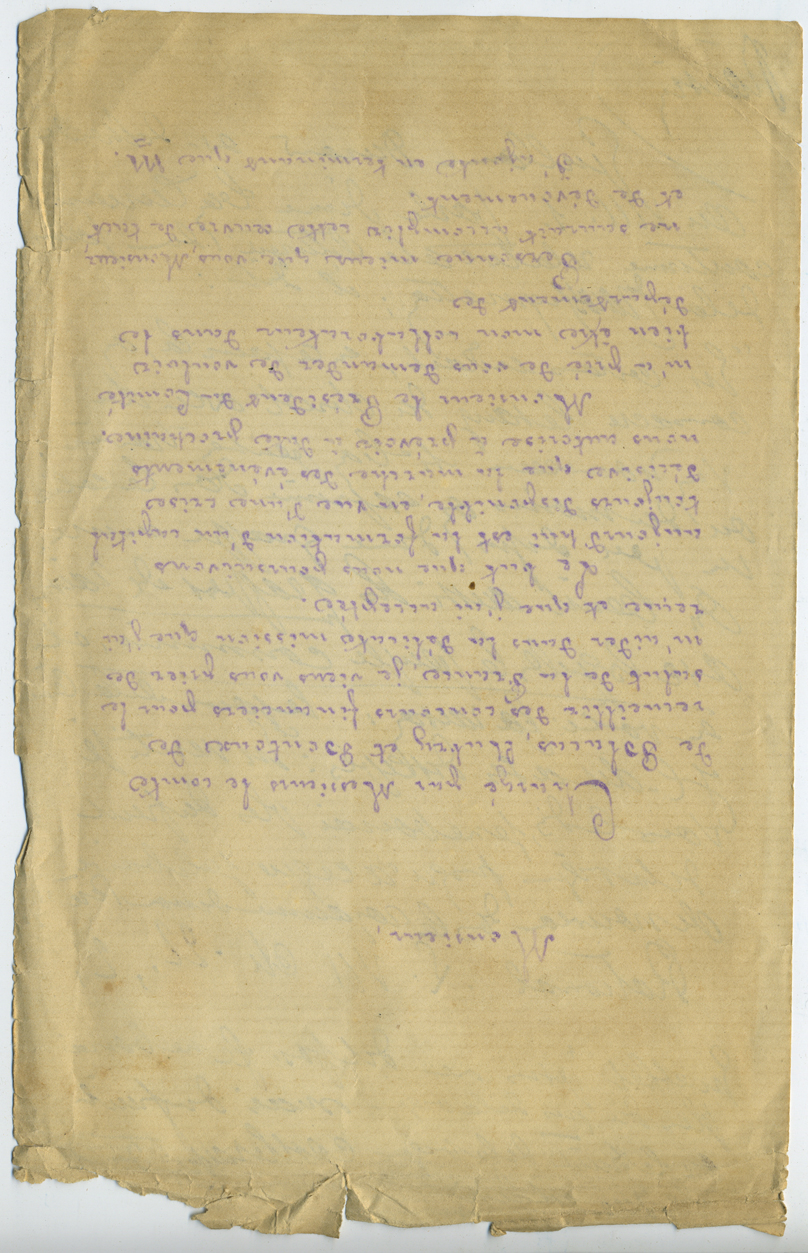 Monsieur,
Chargé par Messieurs le comte
de Blacas, Chabry et Boutous de
recueillir des concours financiers pour le
salut de la France, je viens vous prier de
m'aider dans la délicate mission que j'ai
reçue et que j'ai acceptée.
Le but que nous poursuivons
aujourd'hui est la formation d'un capital
toujours disponible, en vue d'une crise
décisive que la marche des événements
nous autorise à prévoir à date prochaine.
Monsieur le Président du Comité
m'a prié de vous demander de vouloir
bien être mon collaborateur dans le
département de
Personne mieux que vous, Monsieur,
ne saurait accomplir cette œuvre de tact
et de dévouement.
J'ajoute en terminant que M.